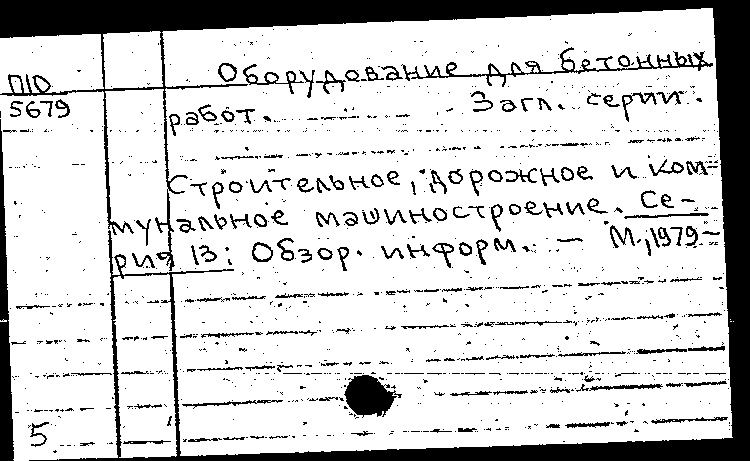 П10
5679
Оборудование для бетонных
работ. Загл. серии.
Строительное, дорожное и ком-
мунальное машиностроение. Се-
рия 13: Обзор. информ. — М., 1979-
5